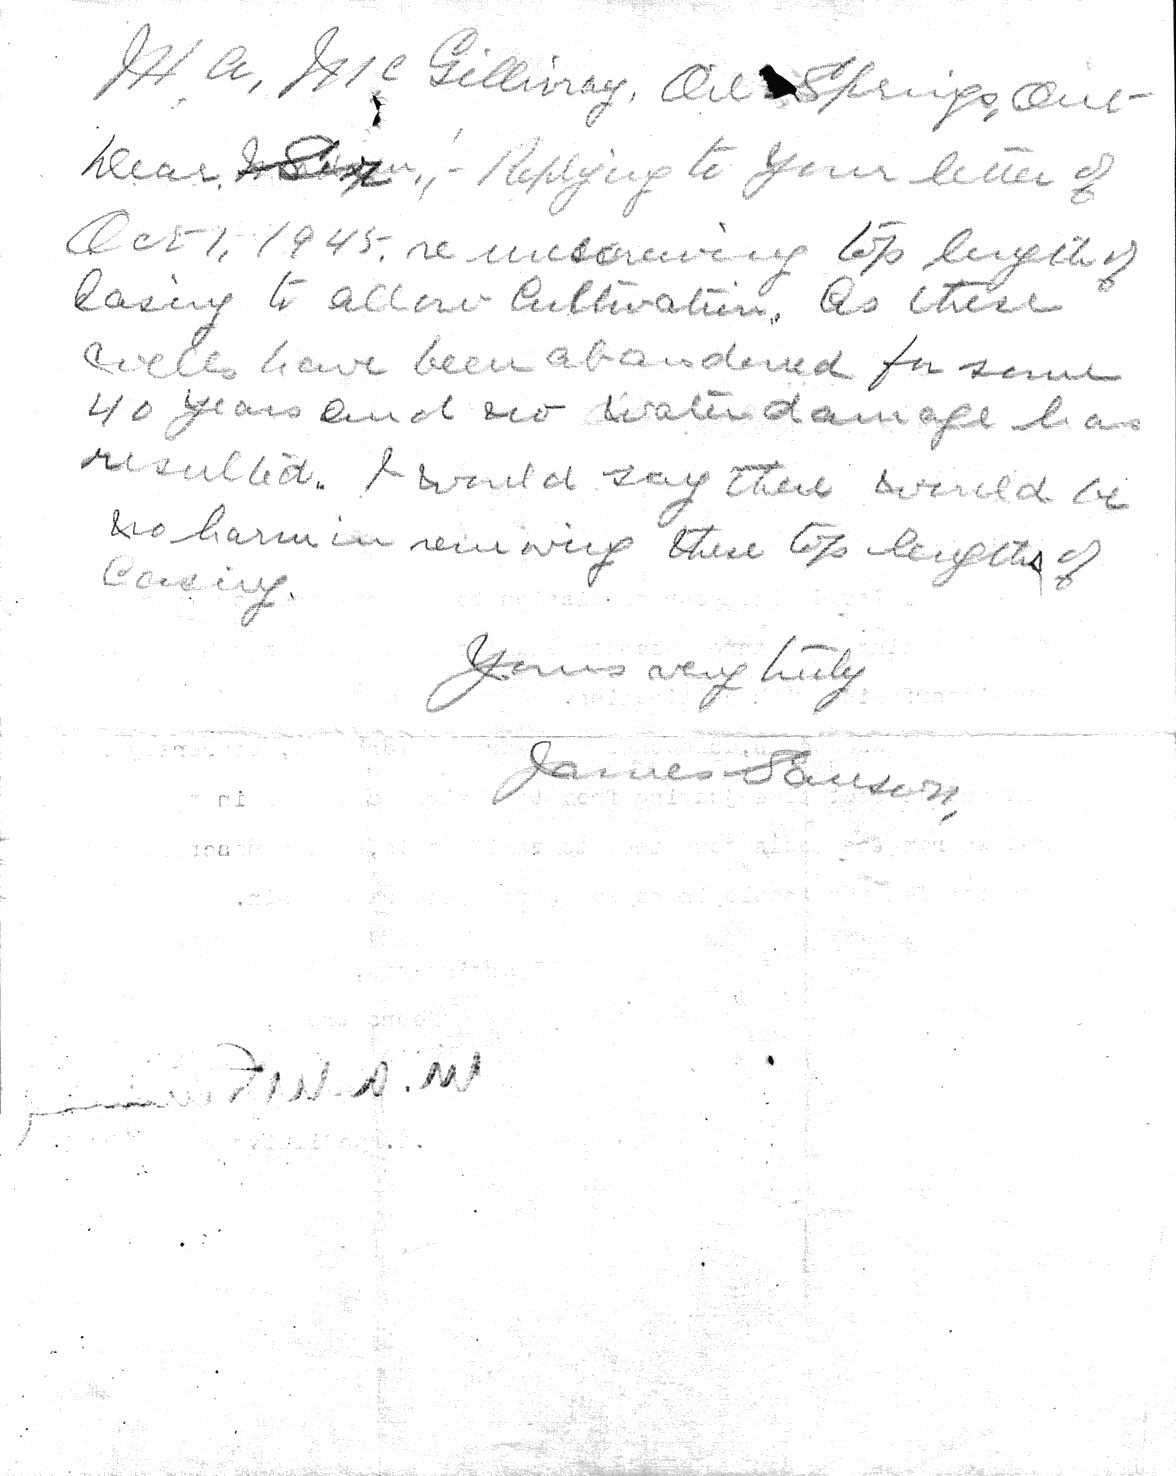 M. A. Mc Gillivray, Oil Springs, Ont
Dear Sir,:- Replying to your letter of
Oct 1, 1945. re unscrewing top length of
Casing to allow Cultivation. As these
wells have been abandoned for some
40 years and no water damage has
resulted. I would say there would be
no harm in removing these top lengths of
Casing.
Yours very truly
James